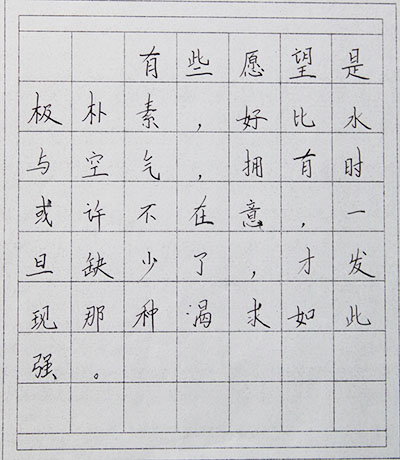 有些愿望是
极朴素，好比水
与空气，拥有时
或许不在意，一
旦缺少了，才发
现那种渴求如此
强。